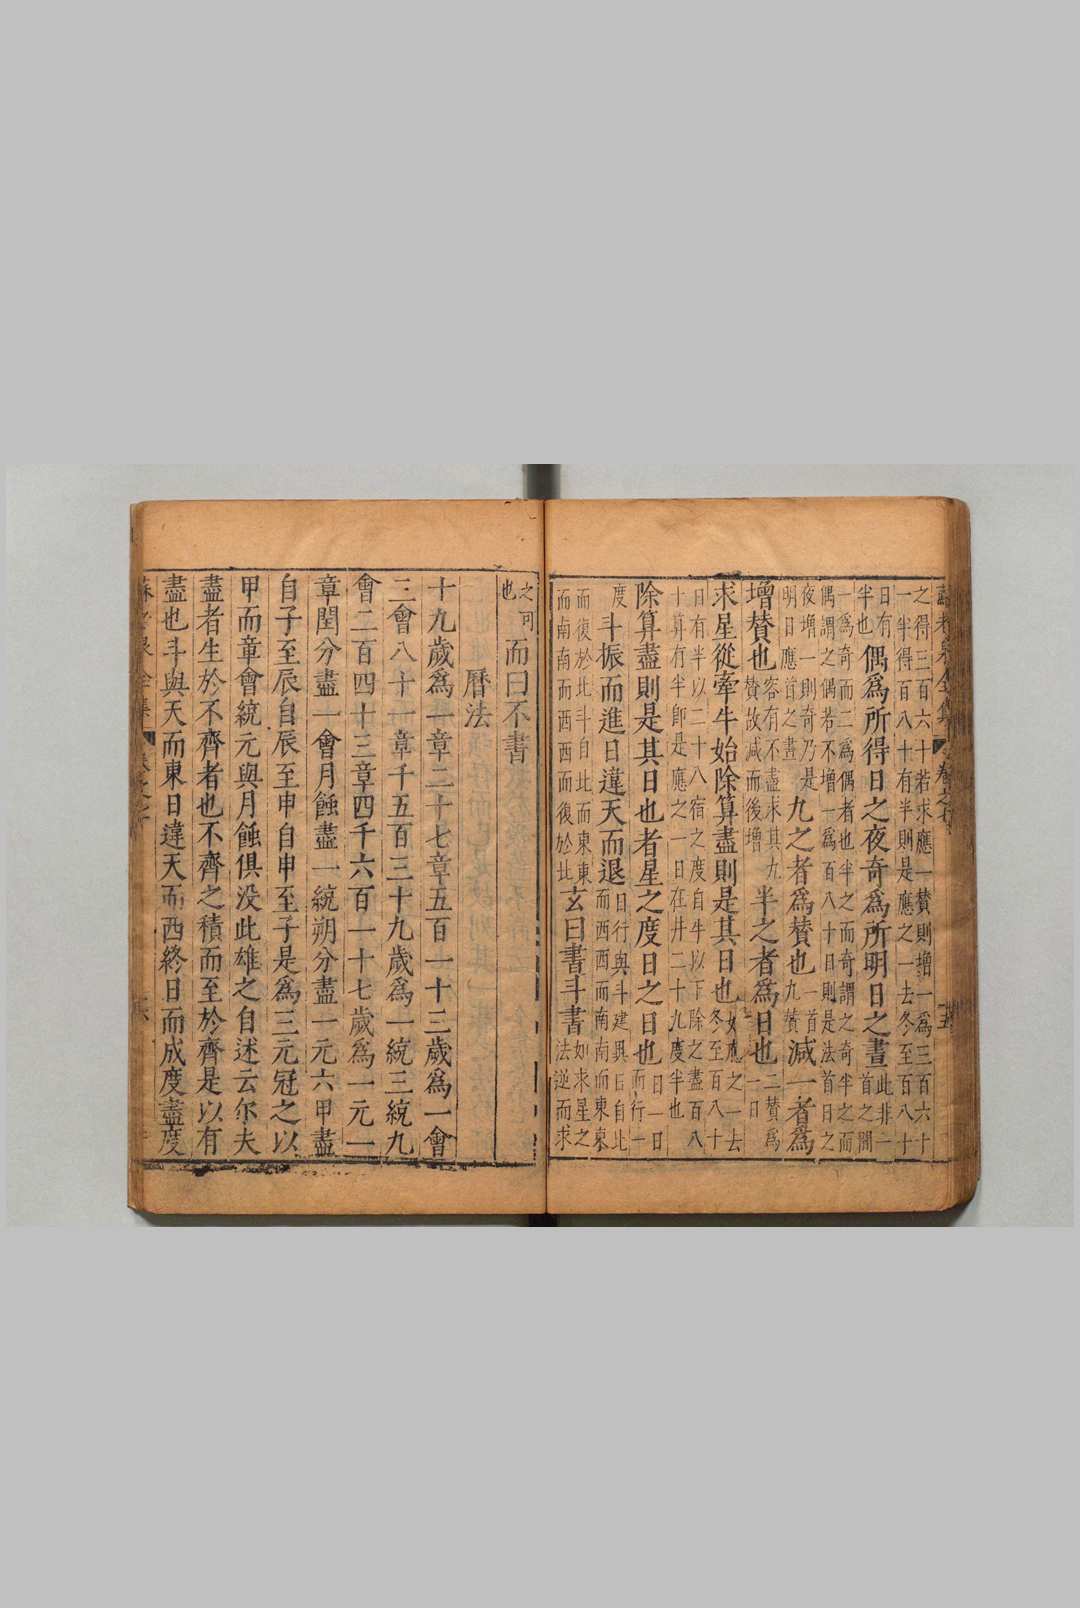 蘇老泉全集 卷之七 十五
之得三百六十若求應一贊則增一爲三百六十
一半得百八十有半則是應之一去冬至百八十
日有半也偶爲所得日之夜奇爲所明日之晝此非一首之間
一爲奇而二爲偶者也半之而奇謂之奇半之而
偶謂之偶若不增一爲百八十日則是法首日之
夜增一則奇乃是明日應首之晝九之者爲贊也一首九贊減一者爲
增贊也容有不盡求其九贊故減而後增半之者爲日也二贊爲一日
求星從牽牛始除算盡則是其日也如應之一去冬至百八十
日有半以二十八宿之度自牛以下除之盡百八
十算有半卽是應之一日在井二十九度半也
除算盡則是其日也者星之度日之日也日一日而行一
度斗振而進日違天而退日行與斗建異日自北而西西而南南而東東
而復於北斗自北而東東而南南而西西而後於北玄曰書斗書如求星之法逆而求
之可也而曰不書
曆法
十九歲爲一章二十七章五百一十三歲爲一會
三會八十一章千五百三十九歲爲一統三統九
會二百四十三章四千六百一十七歲爲一元一
章閏分盡一會月蝕盡一統朔分盡一元六甲盡
自子至辰自辰至申自申至子是爲三元冠之以
甲而章會統元與月蝕俱没此雄之自述云尔夫
盡者生於不齊者也不齊之積而至於齊是以有
盡也斗與天而東日違天而西終日而成度盡度
蘇老泉全集 卷之七